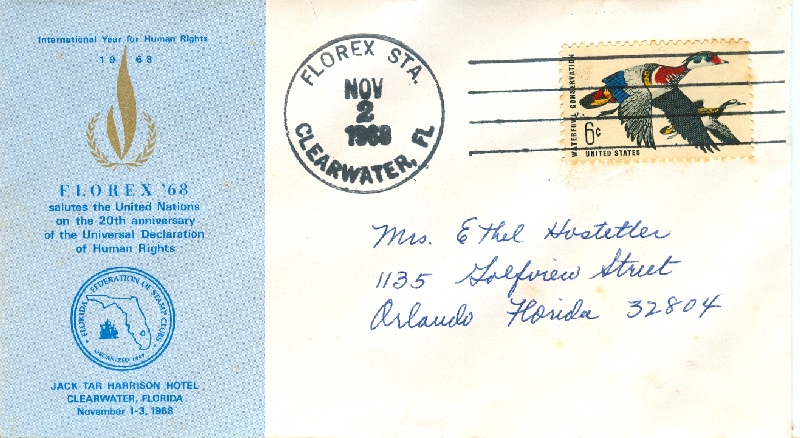 International Year for Human Rights
1968
FLOREX '68
salutes the United Nations
on the 20th anniversary
of the Universal Declaration
of Human Rights
FLORIDA FEDERATION OF STAMP CLUBS
JACK TAR HARRISON HOTEL
CLEARWATER, FLORIDA
November 1-3, 1968
FLOREX STA.
NOV
2
1968
CLEARWATER, FL
WATERFOWL CONSERVATION
6¢
UNITED STATES
Mrs. Ethel Hostetler
1135 Golfview Street
Orlando Florida 32804